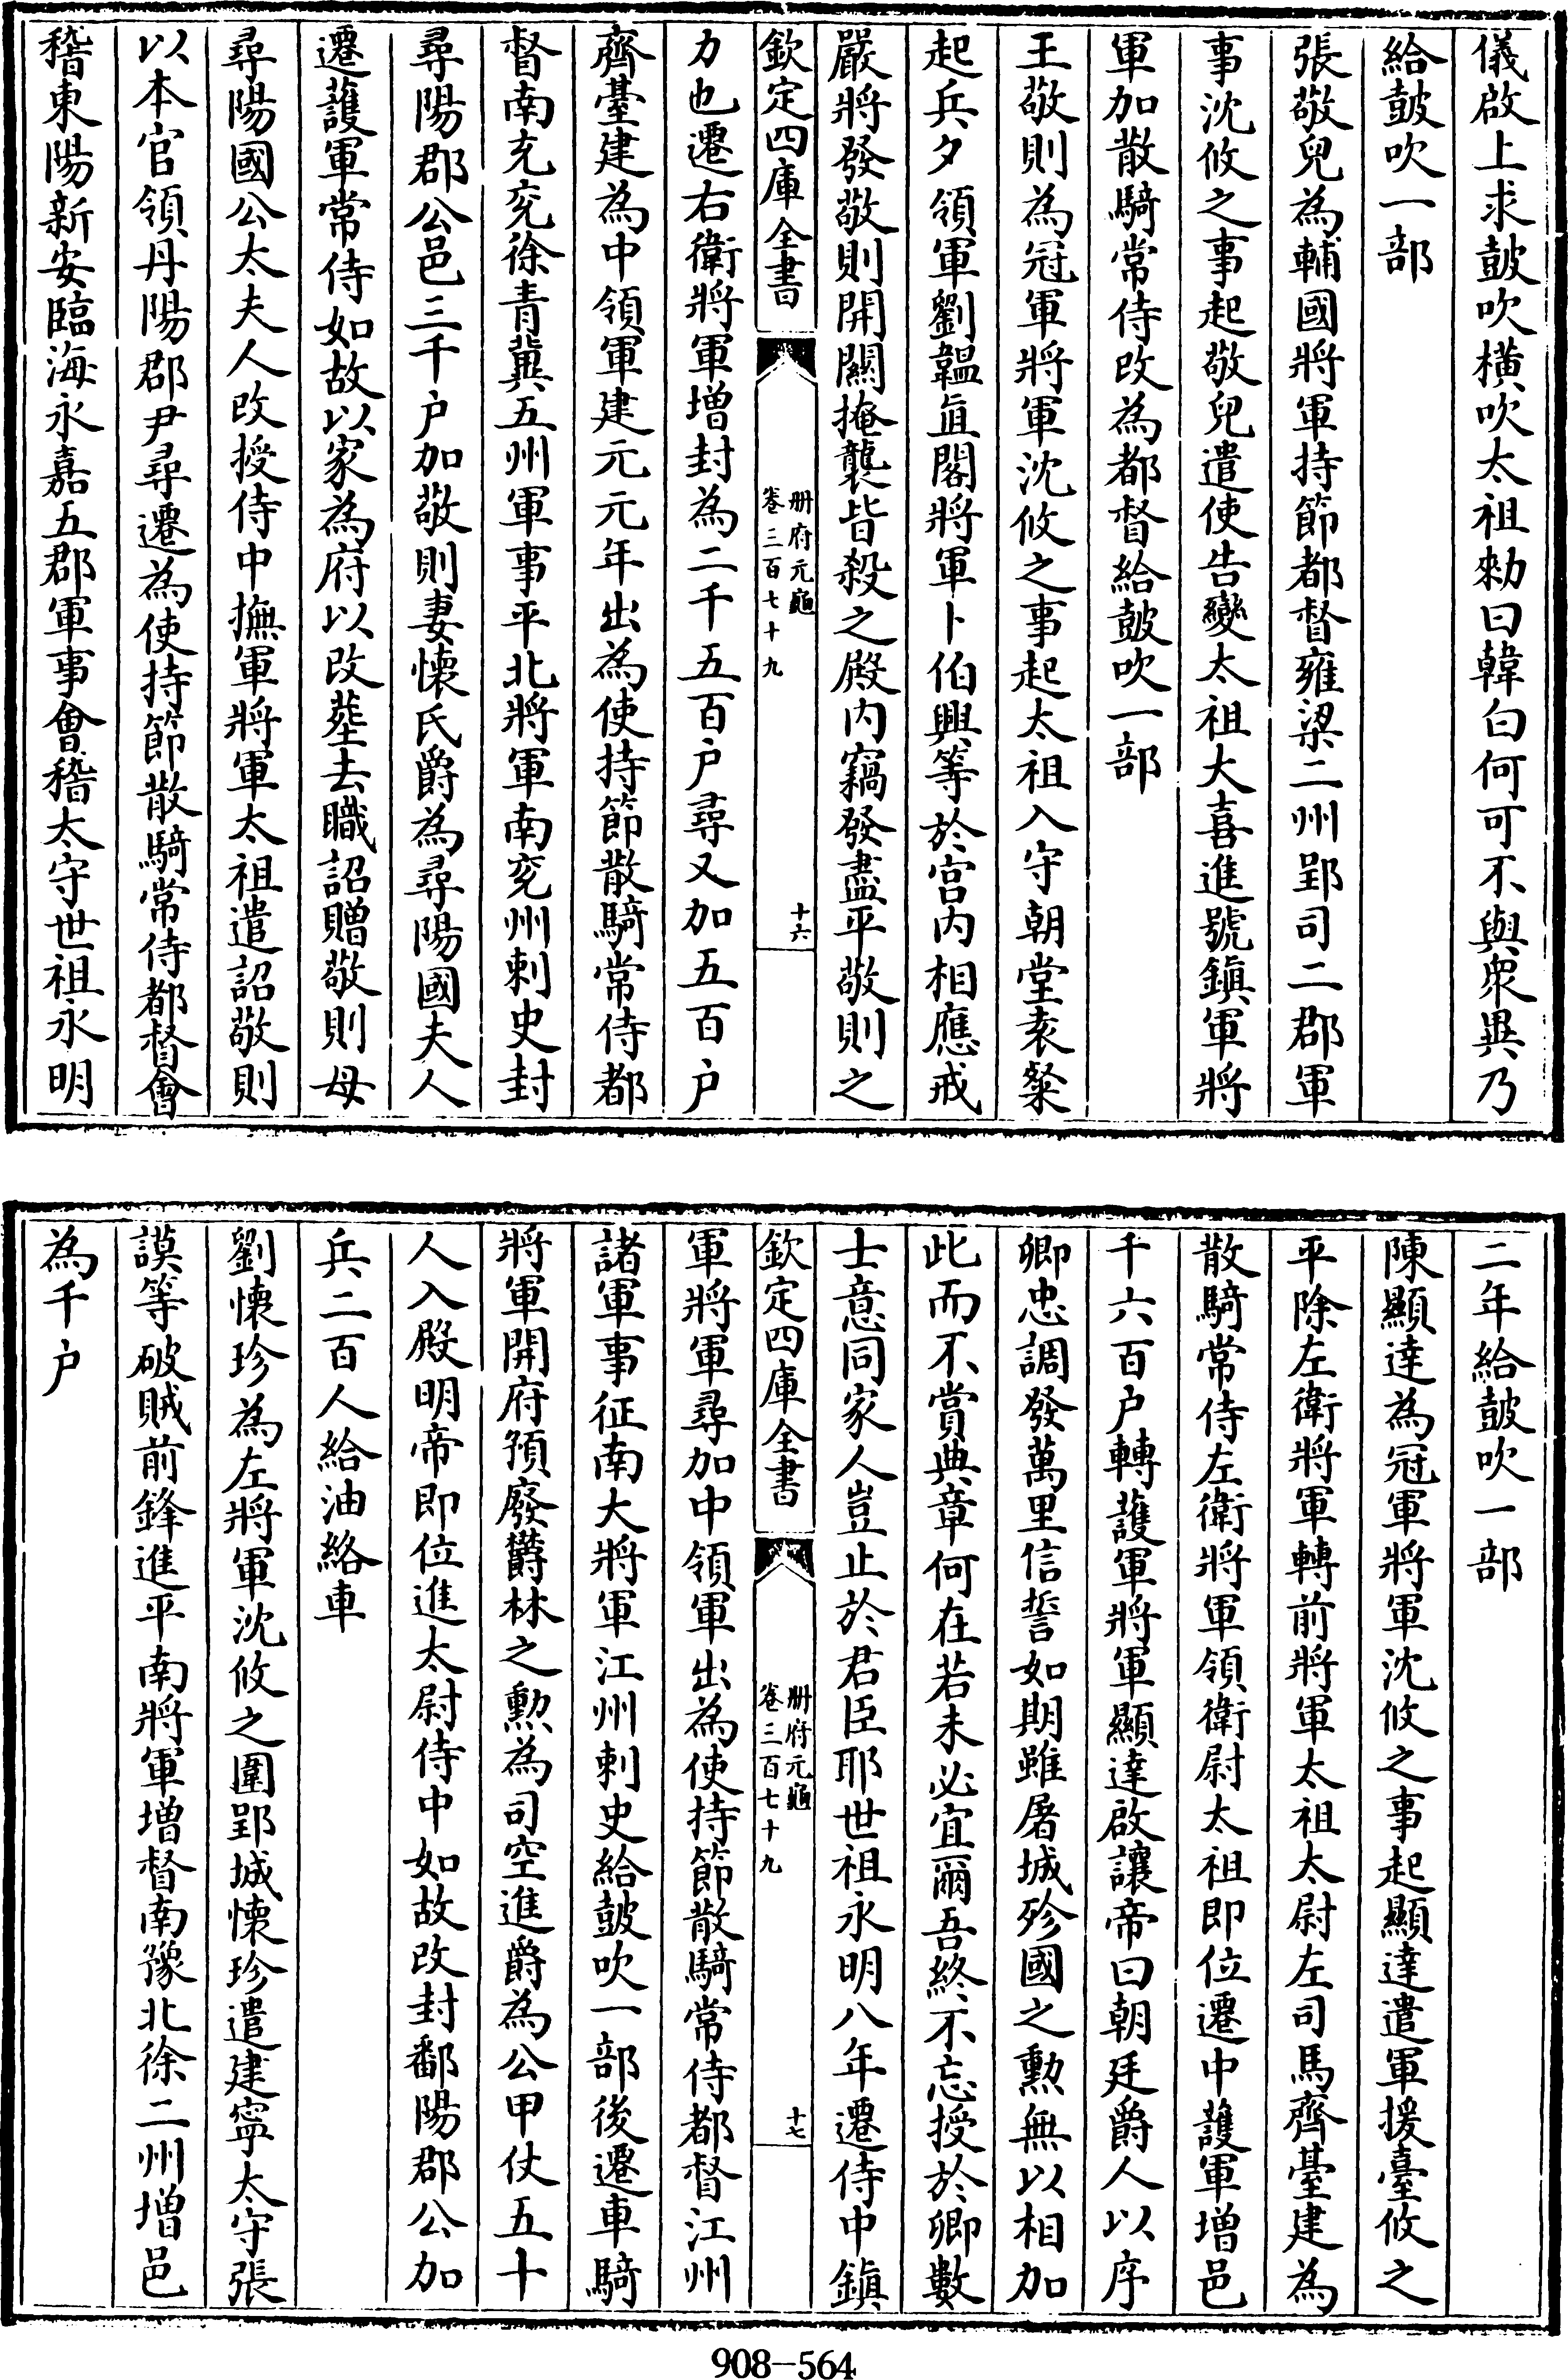 儀啟上求鼓吹横吹太祖勑曰韓白何可不與衆異乃
給鼓吹一部
張敬兒為輔國將軍持節都督雍梁二州郢司二郡軍
事沈攸之事起敬兒遣使告變太祖大喜進號鎮軍將
軍加散騎常侍改為都督給鼓吹一部
王敬則為冠軍將軍沈攸之事起太祖入守朝堂袁粲
起兵夕領軍劉韞直閣將軍卜伯興等於宫内相應戒
嚴將發敬則開關掩襲皆殺之殿内竊發盡平敬則之
欽定四庫全書
册府元龜
卷三百七十九
十六
力也遷右衛將軍增封為二千五百户尋又加五百户
齊臺建為中領軍建元元年出為使持節散騎常侍都
督南兖兖徐青冀五州軍事平北將軍南兖州刺史封
尋陽郡公邑三千户加敬則妻懐氏爵為尋陽國夫人
遷護軍常侍如故以家為府以改塟去職詔贈敬則母
尋陽國公太夫人改授侍中撫軍將軍太祖遣詔敬則
以本官領丹陽郡尹尋遷為使持節散騎常侍都督會
稽東陽新安臨海永嘉五郡軍事會稽太守世祖永明
二年給鼓吹一部
陳顯達為冠軍將軍沈攸之事起顯達遣軍援臺攸之
平除左衛將軍轉前將軍太祖太尉左司馬齊臺建為
散騎常侍左衛將軍領衛尉太祖即位遷中護軍增邑
千六百户轉護軍將軍顯達啟讓帝曰朝廷爵人以序
卿忠調發萬里信誓如期雖屠城殄國之勲無以相加
此而不賞典章何在若未必宜爾吾終不忘授於卿數
士意同家人豈止於君臣耶世祖永明八年遷侍中鎮
欽定四庫全書
册府元龜
卷三百七十九
十七
軍將軍尋加中領軍出為使持節散騎常侍都督江州
諸軍事征南大將軍江州刺史給鼓吹一部後遷車騎
將軍開府預廢欝林之勲為司空進爵為公甲仗五十
人入殿明帝即位進太尉侍中如故改封鄱陽郡公加
兵二百人給油絡車
劉懐珍為左將軍沈攸之圍郢城懐珍遣建寧太守張
謨等破賊前鋒進平南將軍增督南豫北徐二州增邑
為千户
908-564